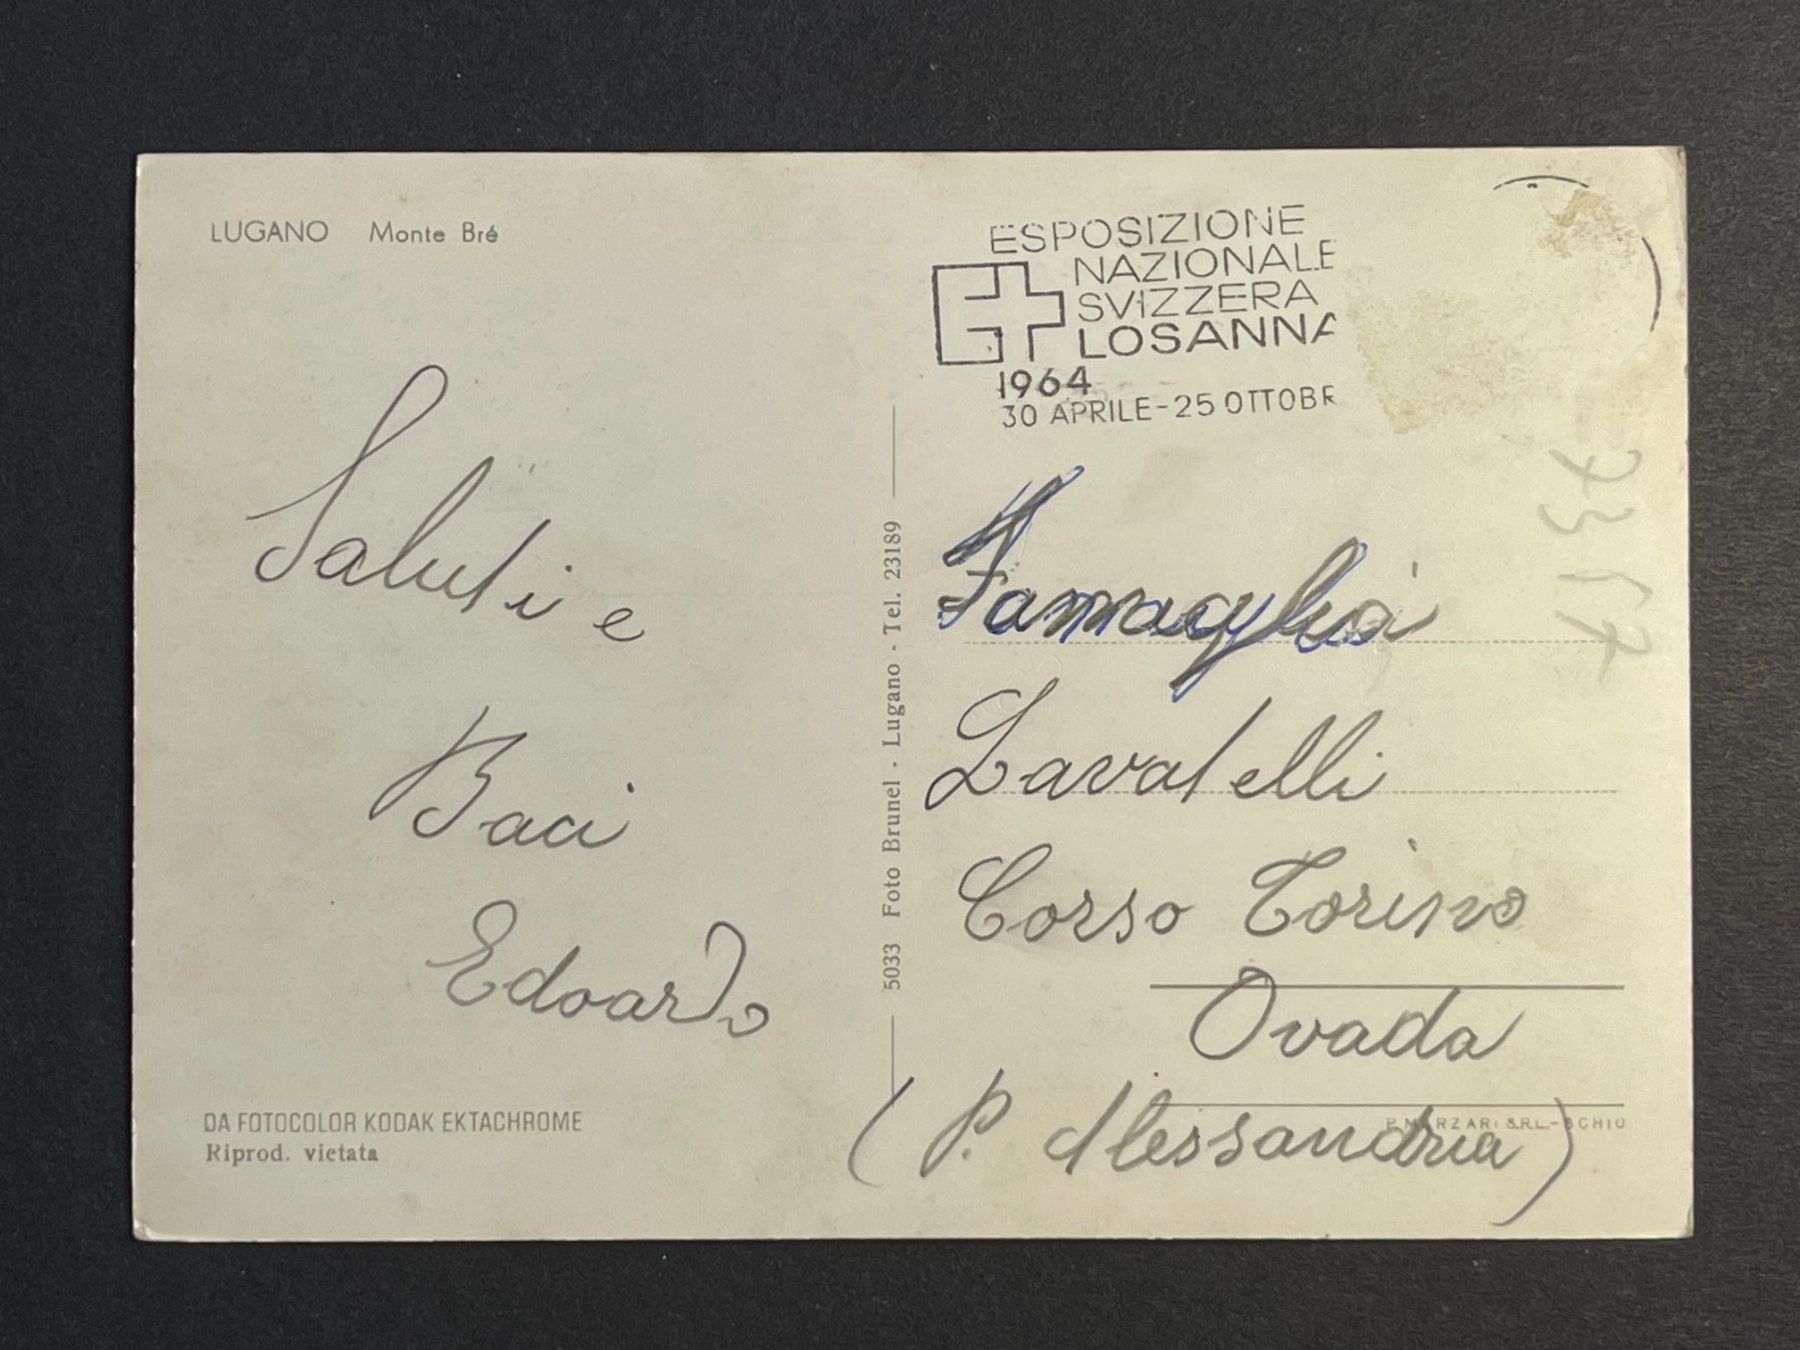 LUGANO Monte Bré
Saluti e
Baci
Edoardo
DA FOTOCOLOR KODAK EKTACHROME
Riprod. vietata
5033 Foto Brunel - Lugano - Tel. 23189
ESPOSIZIONE
NAZIONALE
SVIZZERA
LOSANNA
1964
30 APRILE-25 OTTOBR
Famaglia
Lavatelli
Corso Torino
Ovada
P. MARZARI S.R.L.-SCHIO
(P. Alessandria)